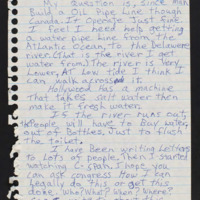 My question is, Since
Build a Oil Pipe Line through
Canada. It Operate Just fine
I feel I need help getting
a water pipe line from, the
Atlantic Ocean, To the Delaware
river. (that is the river I get
water from) The river is Very
Lower, At Low tide I think I
can walk across
Hollywood has a machine
that takes salt water then
make it fresh water.
If the river runs out,
the People will have to Buy water,
out of Bottles. Just to flush
the toilet.
I have been writing Letters
to Lots of people. Then I started
watching C span. I hope you
can ask congress How I can
legally do this, or get this
done. Who? What? When? Where?